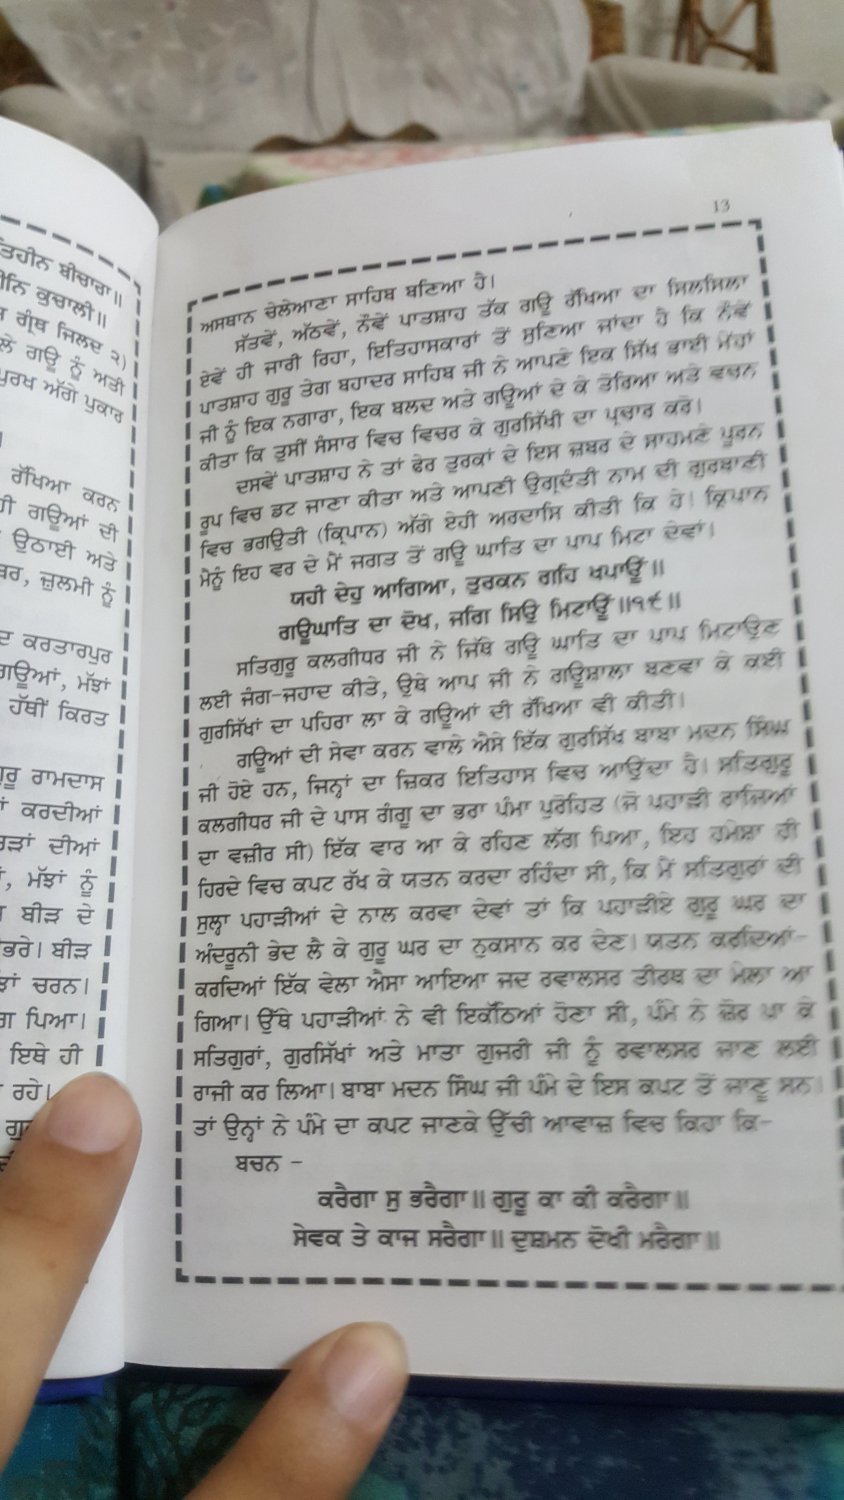 ਤਿਹੀਨ ਬੀਚਾਰਾ॥
ਨਿ ਕੁਚਾਲੀ॥
ਗ੍ਰੰਥ ਜਿਲਦ ੨)
ਲੇ ਗਊ ਨੂੰ ਅਤੀ
ਪੁਰਖ ਅੱਗੇ ਪੁਕਾਰ
।
ਰੱਖਿਆ ਕਰਨ
ਹੀ ਗਊਆਂ ਦੀ
ਉਠਾਈ ਅਤੇ
ਬਰ, ਜ਼ੁਲਮੀ ਨੂੰ
ਦ ਕਰਤਾਰਪੁਰ
ਗਊਆਂ, ਮੱਝਾਂ
ਹੱਥੀਂ ਕਿਰਤ
ਰੂ ਰਾਮਦਾਸ
ਂ ਕਰਦੀਆਂ
ੜਾਂ ਦੀਆਂ
, ਮੱਝਾਂ ਨੂੰ
ਬੀੜ ਦੇ
ਭਰੇ। ਬੀੜ
ਝਾਂ ਚਰਨ।
ਗ ਪਿਆ।
ਇਥੇ ਹੀ
ਰਹੇ।
ਗੁਰ
13
ਅਸਥਾਨ ਚੋਲੇਆਣਾ ਸਾਹਿਬ ਬਣਿਆ ਹੈ।
ਸੱਤਵੇਂ, ਅੱਠਵੇਂ, ਨੌਵੇਂ ਪਾਤਸ਼ਾਹ ਤੱਕ ਗਊ ਰੱਖਿਆ ਦਾ ਸਿਲਸਿਲਾ
ਏਵੇਂ ਹੀ ਜਾਰੀ ਰਿਹਾ, ਇਤਿਹਾਸਕਾਰਾਂ ਤੋਂ ਸੁਣਿਆ ਜਾਂਦਾ ਹੈ ਕਿ ਨੌਵੇਂ
ਪਾਤਸ਼ਾਹ ਗੁਰੂ ਤੇਗ ਬਹਾਦਰ ਸਾਹਿਬ ਜੀ ਨੇ ਆਪਣੇ ਇਕ ਸਿੱਖ ਭਾਈ ਮੱਹਾਂ
ਜੀ ਨੂੰ ਇਕ ਨਗਾਰਾ, ਇਕ ਬਲਦ ਅਤੇ ਗਊਆਂ ਦੇ ਕੇ ਤੋਰਿਆ ਅਤੇ ਵਚਨ
ਕੀਤਾ ਕਿ ਤੁਸੀਂ ਸੰਸਾਰ ਵਿਚ ਵਿਚਰ ਕੇ ਗੁਰਸਿੱਖੀ ਦਾ ਪ੍ਰਚਾਰ ਕਰੋ।
ਦਸਵੇਂ ਪਾਤਸ਼ਾਹ ਨੇ ਤਾਂ ਫੇਰ ਤੁਰਕਾਂ ਦੇ ਇਸ ਜ਼ਬਰ ਦੇ ਸਾਹਮਣੇ ਪੂਰਨ
ਰੂਪ ਵਿਚ ਡਟ ਜਾਣਾ ਕੀਤਾ ਅਤੇ ਆਪਣੀ ਉਗ੍ਰਦੰਤੀ ਨਾਮ ਦੀ ਗੁਰਬਾਣੀ
ਵਿਚ ਭਗਉਤੀ (ਕ੍ਰਿਪਾਨ) ਅੱਗੇ ਏਹੀ ਅਰਦਾਸਿ ਕੀਤੀ ਕਿ ਹੇ! ਕ੍ਰਿਪਾਨ
ਮੈਨੂੰ ਇਹ ਵਰ ਦੇ ਮੈਂ ਜਗਤ ਤੋਂ ਗਊ ਘਾਤਿ ਦਾ ਪਾਪ ਮਿਟਾ ਦੇਵਾਂ।
ਯਹੀ ਦੇਹੁ ਆਗਿਆ, ਤੁਰਕਨ ਗਹਿ ਖਪਾਊਂ॥
ਗਊਘਾਤਿ ਦਾ ਦੋਖ, ਜਗਿ ਸਿਉ ਮਿਟਾਊਂ॥੧੯॥
ਸਤਿਗੁਰੂ ਕਲਗੀਧਰ ਜੀ ਨੇ ਜਿੱਥੇ ਗਊ ਘਾਤਿ ਦਾ ਪਾਪ ਮਿਟਾਉਣ
ਲਈ ਜੰਗ-ਜਹਾਦ ਕੀਤੇ, ਉਥੇ ਆਪ ਜੀ ਨੇ ਗਊਸ਼ਾਲਾ ਬਣਵਾ ਕੇ ਕਈ
ਗੁਰਸਿੱਖਾਂ ਦਾ ਪਹਿਰਾ ਲਾ ਕੇ ਗਊਆਂ ਦੀ ਰੱਖਿਆ ਵੀ ਕੀਤੀ।
ਗਊਆਂ ਦੀ ਸੇਵਾ ਕਰਨ ਵਾਲੇ ਐਸੇ ਇੱਕ ਗੁਰਸਿੱਖ ਬਾਬਾ ਮਦਨ ਸਿੰਘ
ਜੀ ਹੋਏ ਹਨ, ਜਿਨ੍ਹਾਂ ਦਾ ਜ਼ਿਕਰ ਇਤਿਹਾਸ ਵਿਚ ਆਉਂਦਾ ਹੈ। ਸਤਿਗੁਰੂ
ਕਲਗੀਧਰ ਜੀ ਦੇ ਪਾਸ ਗੰਗੂ ਦਾ ਭਰਾ ਪੰਮਾ ਪੁਰੋਹਿਤ (ਜੋ ਪਹਾੜੀ ਰਾਜਿਆਂ
ਦਾ ਵਜ਼ੀਰ ਸੀ) ਇੱਕ ਵਾਰ ਆ ਕੇ ਰਹਿਣ ਲੱਗ ਪਿਆ, ਇਹ ਹਮੇਸ਼ਾ ਹੀ
ਹਿਰਦੇ ਵਿਚ ਕਪਟ ਰੱਖ ਕੇ ਯਤਨ ਕਰਦਾ ਰਹਿੰਦਾ ਸੀ, ਕਿ ਮੈਂ ਸਤਿਗੁਰਾਂ ਦੀ
ਸੁਲ੍ਹਾ ਪਹਾੜੀਆਂ ਦੇ ਨਾਲ ਕਰਵਾ ਦੇਵਾਂ ਤਾਂ ਕਿ ਪਹਾੜੀਏ ਗੁਰੂ ਘਰ ਦਾ
ਅੰਦਰੂਨੀ ਭੇਦ ਲੈ ਕੇ ਗੁਰੂ ਘਰ ਦਾ ਨੁਕਸਾਨ ਕਰ ਦੇਣ। ਯਤਨ ਕਰਦਿਆਂ-
ਕਰਦਿਆਂ ਇੱਕ ਵੇਲਾ ਐਸਾ ਆਇਆ ਜਦ ਰਵਾਲਸਰ ਤੀਰਥ ਦਾ ਮੇਲਾ ਆ
ਗਿਆ। ਉੱਥੇ ਪਹਾੜੀਆਂ ਨੇ ਵੀ ਇਕੱਠਿਆਂ ਹੋਣਾ ਸੀ, ਪੰਮੇ ਨੇ ਜ਼ੋਰ ਪਾ ਕੇ
ਸਤਿਗੁਰਾਂ, ਗੁਰਸਿੱਖਾਂ ਅਤੇ ਮਾਤਾ ਗੁਜਰੀ ਜੀ ਨੂੰ ਰਵਾਲਸਰ ਜਾਣ ਲਈ
ਰਾਜੀ ਕਰ ਲਿਆ। ਬਾਬਾ ਮਦਨ ਸਿੰਘ ਜੀ ਪੰਮੇ ਦੇ ਇਸ ਕਪਟ ਤੋਂ ਜਾਣੂ ਸਨ।
ਤਾਂ ਉਨ੍ਹਾਂ ਨੇ ਪੰਮੇ ਦਾ ਕਪਟ ਜਾਣਕੇ ਉੱਚੀ ਆਵਾਜ਼ ਵਿਚ ਕਿਹਾ ਕਿ-
ਬਚਨ -
ਕਰੈਗਾ ਸੁ ਭਰੈਗਾ॥ ਗੁਰੂ ਕਾ ਕੀ ਕਰੈਗਾ॥
ਸੇਵਕ ਤੇ ਕਾਜ ਸਰੈਗਾ॥ ਦੁਸ਼ਮਨ ਦੋਖੀ ਮਰੈਗਾ॥